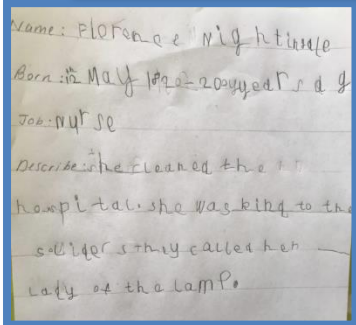 Name: Florence Nightingale
Born: 12 May 1820-200 years ag
Job: nurse
Describe: she cleaned the
hospital. she was kind to the
soliders they called her
Lady of the lamp.